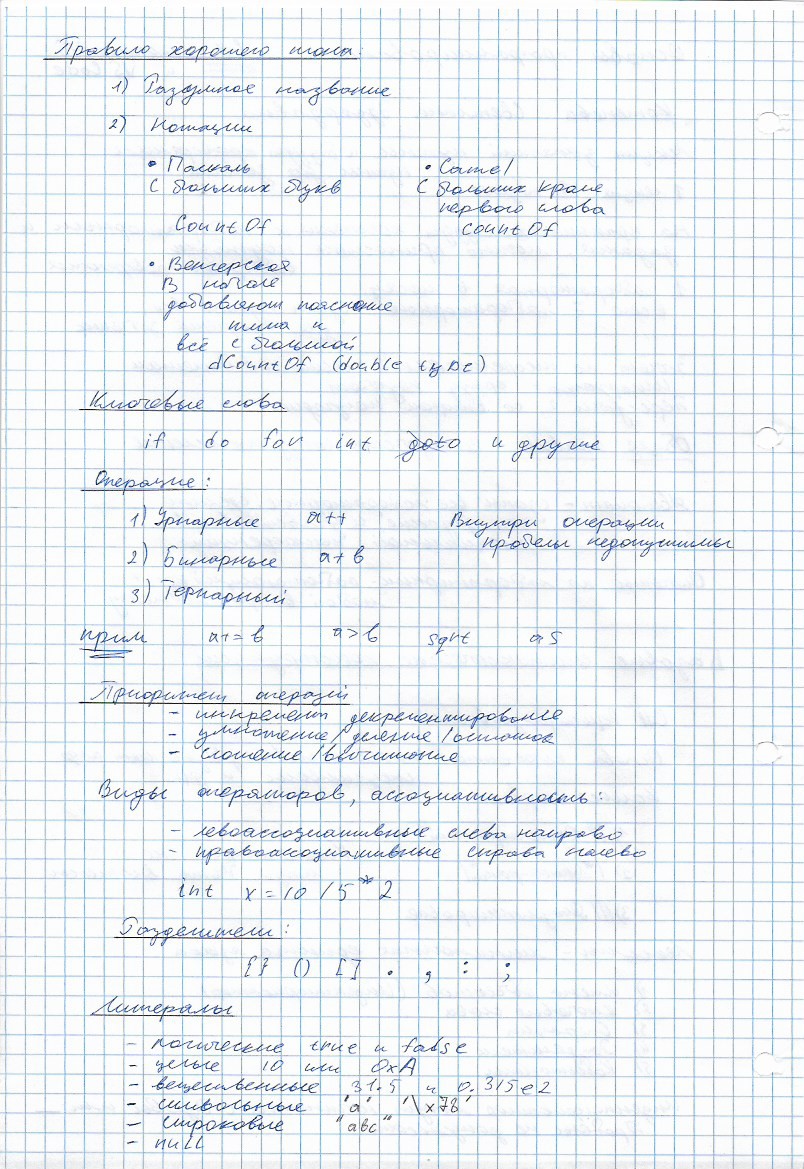 Правило хорошего тона:
1) Разумное название
2) Нотации
• Паскаль
С больших букв
CountOf
• Camel
С больших кроме
первого слова
countOf
• Венгерская
В начале
добавляют пояснение
типа и
всё с большой
dCountOf (double type)
Ключевые слова
if do for int goto и другие
Операции:
1) Унарные a++
Внутри операции
пробелы недопустимы
2) Бинарные a+b
3) Тернарный
прим a+=b a>b sqrt as
Приоритет операций
- инкремент декрементирование
- умножение/деление/остаток
- сложение/вычитание
Виды операторов, ассоциативность:
- левоассоциативные слева направо
- правоассоциативные справа налево
int x=10/5*2
Разделители:
{} () [] . , : ;
Литералы
- логические true и false
- целые 10 или 0xA
- вещественные 31.5 и 0.315e2
- символьные 'a' '\x78'
- строковые "abc"
- null